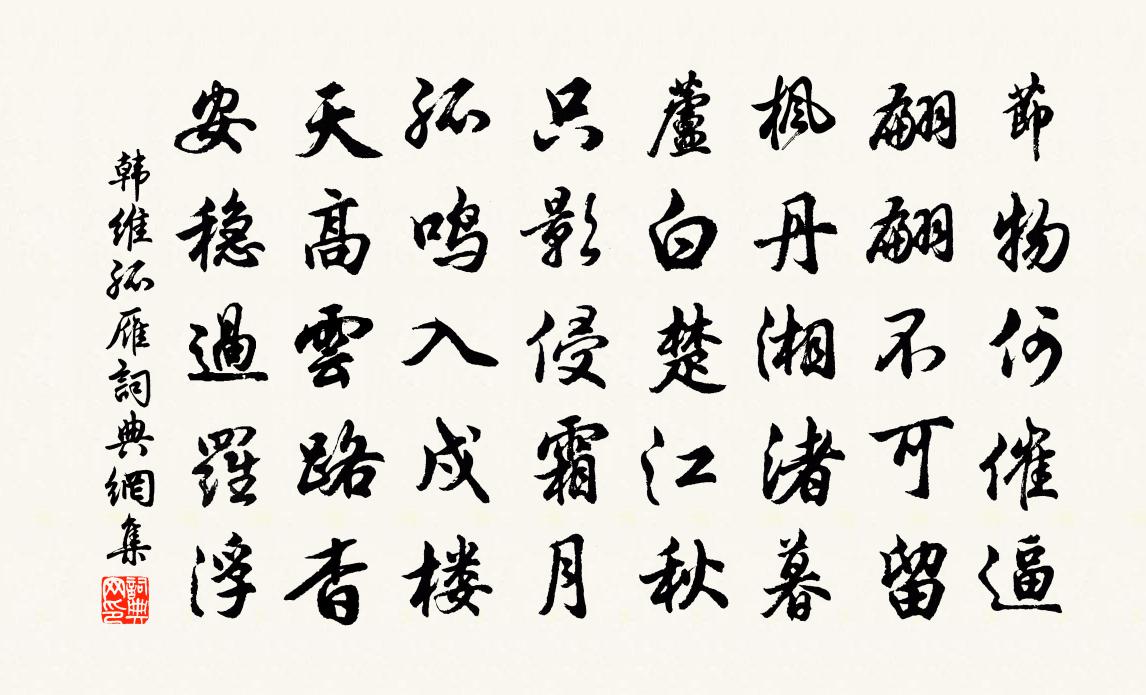 節物何催逼
翩翩不可留
楓丹湘渚暮
蘆白楚江秋
只影侵霜月
孤鸣入戍楼
天高雲路杳
安穏過羅浮
韩维孤雁詞典網集
詞典網印